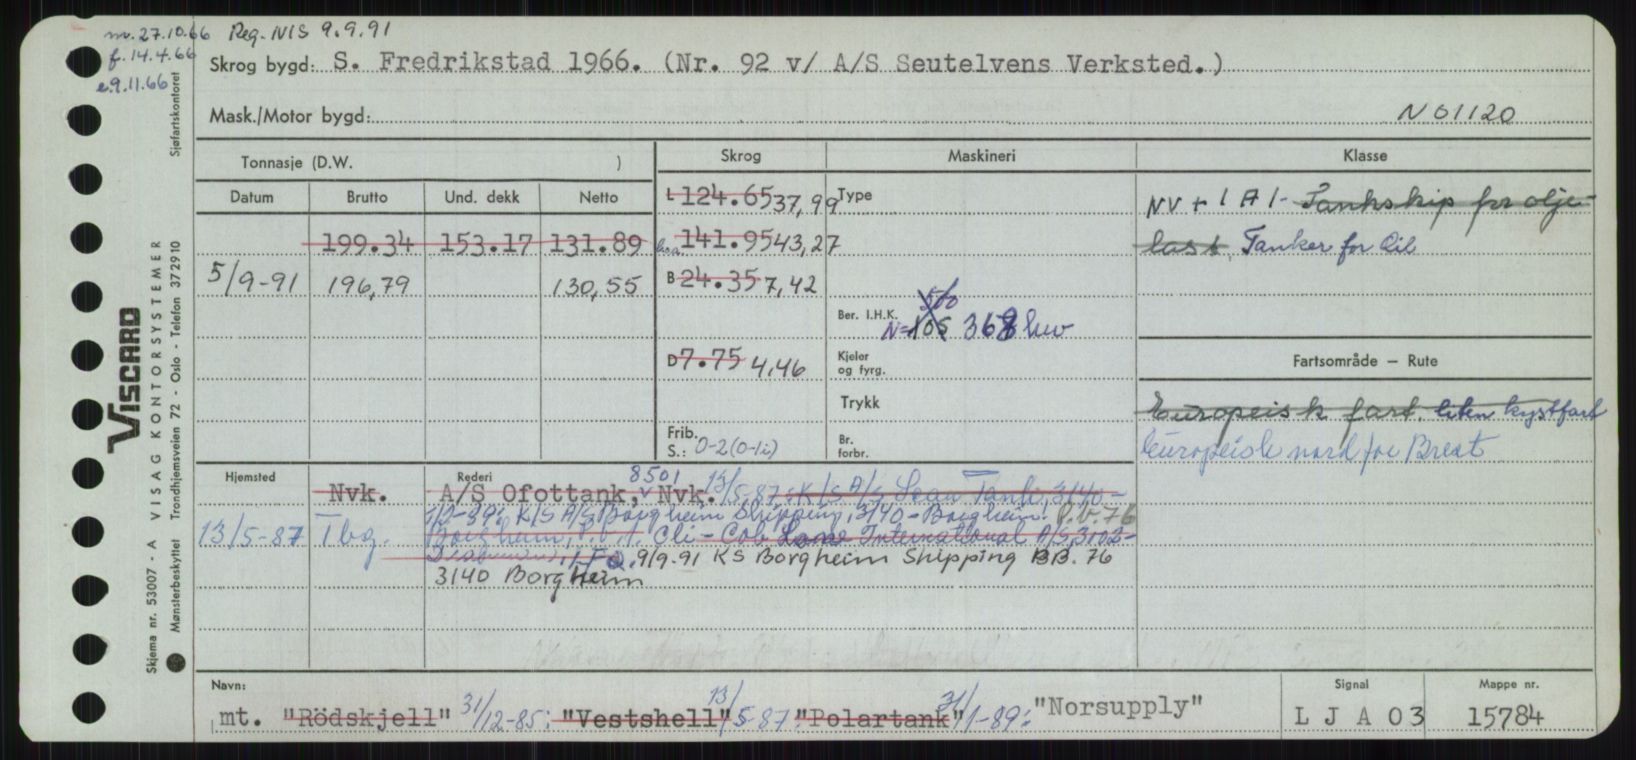 m. 27.10.66 Reg. NIS 9.9.91
f. 14.4.66
e. 9.11.66
Skrog bygd: S. Fredrikstad 1966. (Nr. 92 v/ A/S Seutelvens Verksted.)
Mask./Motor bygd: N 01120
Tonnasje (D.W. ) Skrog Maskineri Klasse
Datum Brutto Und. dekk Netto
L 124.65 37,99 Type NV + 1 A 1 - Tankskip for olje-
199.34 153.17 131.89 loa 141.95 43,27 last. Tanker for Oil
5/9-91 196,79 130,55 B 24.35 7,42
500
Ber. I.H.K. N= 105 368 kw
D 7.75 4,46 Kjeler og fyrg. Fartsområde — Rute
Trykk Europeisk fart. liten kystfart
Frib. S.: 0-2 (0-1i) Br. forbr. Europeisk nord for Brest
Hjemsted Rederi 8501
Nvk. A/S Ofottank, Nvk. 13/5-87: K/S A/S Scan Tank, 3140-
1/2-89: K/S A/S Borgheim Shipping, 3140-Borgheim. P.b. 76
13/5-87 Tbg. Borgheim, International A/S, 3102-
9/9.91 KS Borgheim Shipping BB. 76
3140 Borgheim
Navn: Signal Mappe nr.
mt. "Rödskjell" 31/12-85: "Vestshell" 13/5-87 "Polartank" 31/1-89: "Norsupply" L J A O 3 15784
VISCARD
VISAG KONTORSYSTEMER
Skjema nr. 53007 - A
Mønsterbeskyttet Trondhjemsveien 72 - Oslo - Telefon 372910 Sjøfartskontoret